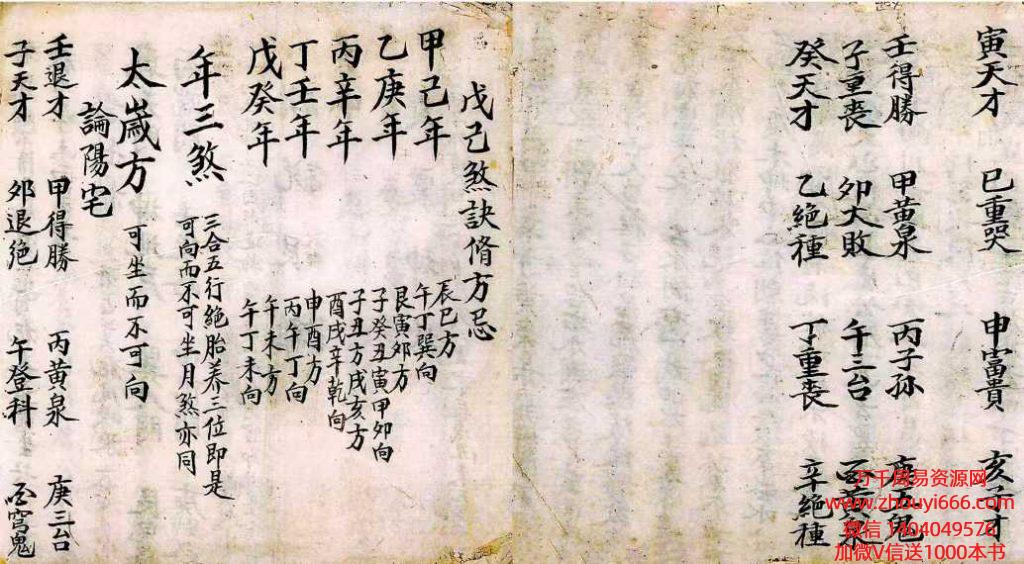 寅天才 巳重哭 申富貴 亥子才
壬得勝 甲黃泉 丙子孙 庚五鬼
子重丧 卯大敗 午三台 酉黃泉
癸天才 乙絶種 丁重丧 辛絶種
戊己煞訣脩方忌
甲己年 辰巳方
午丁巽向
乙庚年 艮寅卯方
子癸丑寅甲卯向
丙辛年 子丑方戌亥方
酉戌辛乾向
丁壬年 申酉方
丙午丁向
戊癸年 午未方
午丁未向
年三煞 三合五行絶胎养三位即是
可向而不可坐月煞亦同
太歲方 可坐而不可向
論陽宅
壬退才 甲得勝 丙黃泉 庚三台
子天才 卯退絶 午登科 酉穹鬼
万千周易资源网
www.zhouyi666.com
微信 1404049576
加微V信送1000本书